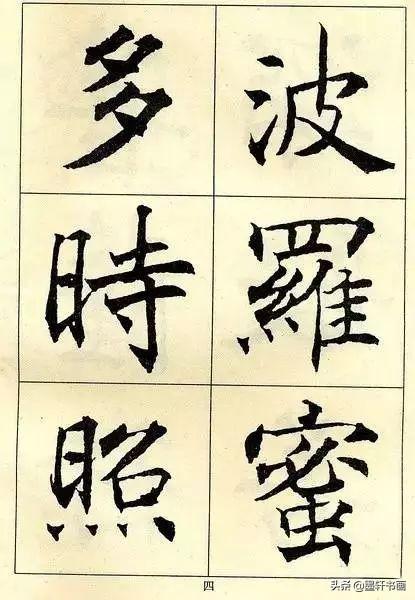 波羅蜜
多時照
四
头条@墨轩书画